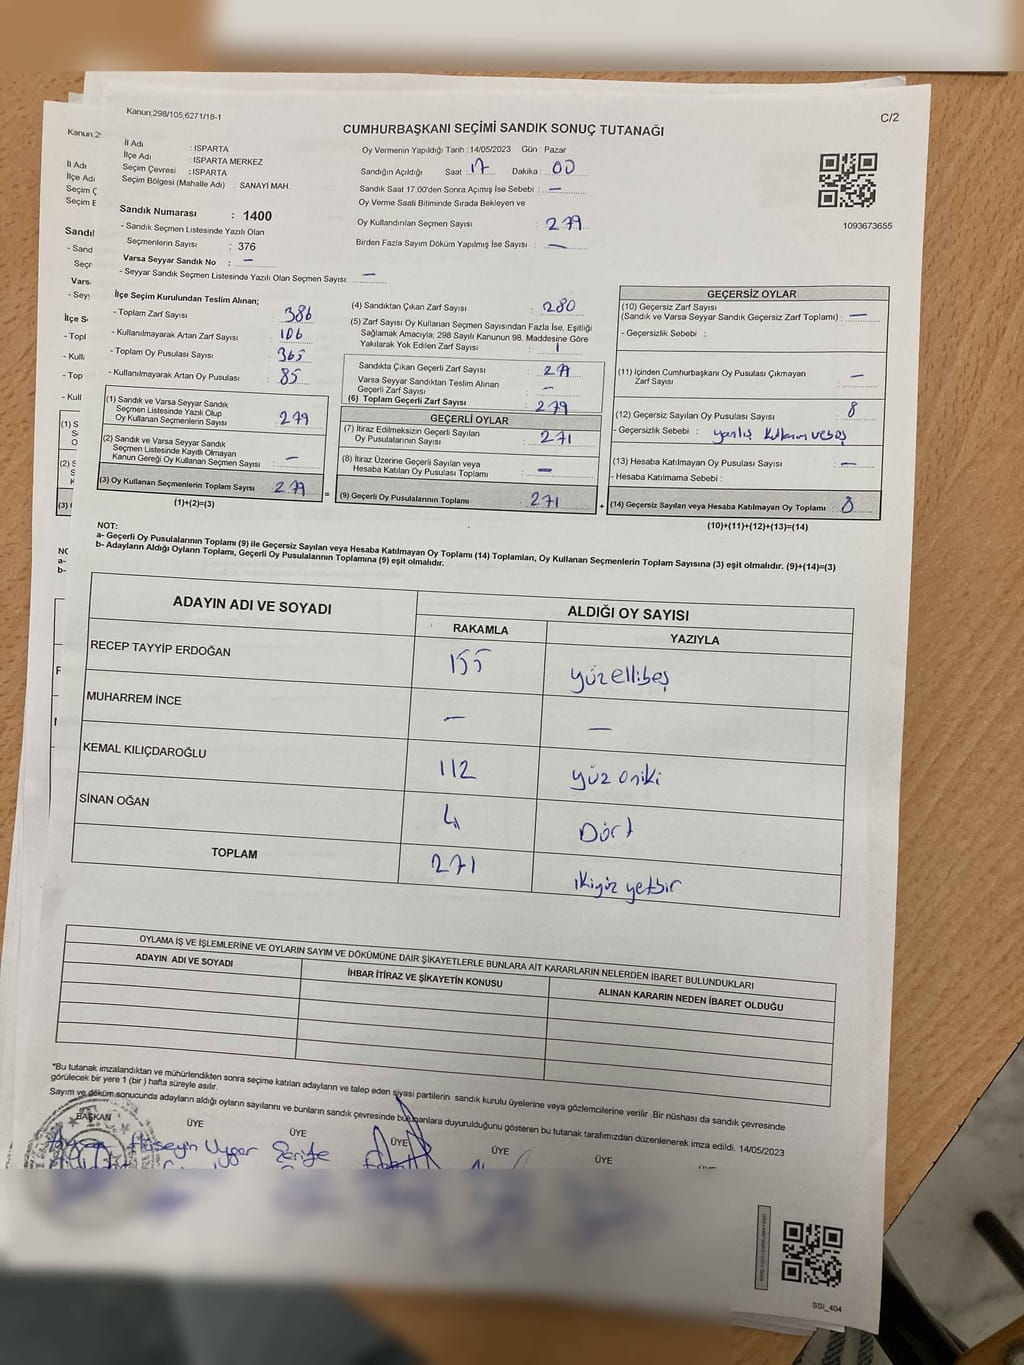 Kanun;298/105,6271/18-1
C/2
CUMHURBAŞKANI SEÇİMİ SANDIK SONUÇ TUTANAĞI
İl Adı : ISPARTA
İlçe Adı : ISPARTA MERKEZ
Seçim Çevresi : ISPARTA
Seçim Bölgesi (Mahalle Adı) : SANAYİ MAH.
Sandık Numarası : 1400
- Sandık Seçmen Listesinde Yazılı Olan
Seçmenlerin Sayısı : 376
Varsa Seyyar Sandık No : —
- Seyyar Sandık Seçmen Listesinde Yazılı Olan Seçmen Sayısı: —
Oy Vermenin Yapıldığı Tarih : 14/05/2023 Gün : Pazar
Sandığın Açıldığı Saat : 17 Dakika : 00
Sandık Saat 17:00'den Sonra Açımış İse Sebebi : —
Oy Verme Saati Bitiminde Sırada Bekleyen ve
Oy Kullandırılan Seçmen Sayısı : 279
Birden Fazla Sayım Döküm Yapılmış İse Sayısı : —
1093673655
İlçe Seçim Kurulundan Teslim Alınan;
- Toplam Zarf Sayısı : 386
- Kullanılmayarak Artan Zarf Sayısı : 106
- Toplam Oy Pusulası Sayısı : 365
- Kullanılmayarak Artan Oy Pusulası : 85
(1) Sandık ve Varsa Seyyar Sandık
Seçmen Listesinde Yazılı Olup
Oy Kullanan Seçmenlerin Sayısı : 279
(2) Sandık ve Varsa Seyyar Sandık
Seçmen Listesinde Kayıtlı Olmayan
Kanun Gereği Oy Kullanan Seçmen Sayısı : —
(3) Oy Kullanan Seçmenlerin Toplam Sayısı : 279
(1)+(2)=(3)
(4) Sandıktan Çıkan Zarf Sayısı : 280
(5) Zarf Sayısı Oy Kullanan Seçmen Sayısından Fazla İse, Eşitliği
Sağlamak Amacıyla, 298 Sayılı Kanunun 98. Maddesine Göre
Yakılarak Yok Edilen Zarf Sayısı : 1
Sandıkta Çıkan Geçerli Zarf Sayısı : 279
Varsa Seyyar Sandıktan Teslim Alınan
Geçerli Zarf Sayısı : —
(6) Toplam Geçerli Zarf Sayısı : 279
GEÇERLİ OYLAR
(7) İtiraz Edilmeksizin Geçerli Sayılan
Oy Pusulalarının Sayısı : 271
(8) İtiraz Üzerine Geçerli Sayılan veya
Hesaba Katılan Oy Pusulası Toplamı : —
(9) Geçerli Oy Pusulalarının Toplamı : 271
GEÇERSİZ OYLAR
(10) Geçersiz Zarf Sayısı
(Sandık ve Varsa Seyyar Sandık Geçersiz Zarf Toplamı) : —
- Geçersizlik Sebebi :
(11) İçinden Cumhurbaşkanı Oy Pusulası Çıkmayan
Zarf Sayısı : —
(12) Geçersiz Sayılan Oy Pusulası Sayısı : 8
- Geçersizlik Sebebi : yanlış
(13) Hesaba Katılmayan Oy Pusulası Sayısı : —
- Hesaba Katılmama Sebebi :
(14) Geçersiz Sayılan veya Hesaba Katılmayan Oy Toplamı : 8
(10)+(11)+(12)+(13)=(14)
NOT:
a- Geçerli Oy Pusulalarının Toplamı (9) ile Geçersiz Sayılan veya Hesaba Katılmayan Oy Toplamı (14) Toplamları, Oy Kullanan Seçmenlerin Toplam Sayısına (3) eşit olmalıdır. (9)+(14)=(3)
b- Adayların Aldığı Oyların Toplamı, Geçerli Oy Pusulalarının Toplamına (9) eşit olmalıdır.
ADAYIN ADI VE SOYADI ALDIĞI OY SAYISI
RAKAMLA YAZIYLA
RECEP TAYYİP ERDOĞAN 155 yüzellibeş
MUHARREM İNCE — —
KEMAL KILIÇDAROĞLU 112 yüz oniki
SİNAN OĞAN 4 Dört
TOPLAM 271 ikiyüz yetbir
OYLAMA İŞ VE İŞLEMLERİNE VE OYLARIN SAYIM VE DÖKÜMÜNE DAİR ŞİKAYETLERLE BUNLARA AİT KARARLARIN NELERDEN İBARET BULUNDUKLARI
ADAYIN ADI VE SOYADI İHBAR İTİRAZ VE ŞİKAYETİN KONUSU ALINAN KARARIN NEDEN İBARET OLDUĞU
*Bu tutanak imzalandıktan ve mühürlendikten sonra seçime katılan adayların ve talep eden siyasi partilerin sandık kurulu üyelerine veya gözlemcilerine verilir. Bir nüshası da sandık çevresinde
görülecek bir yere 1 (bir) hafta süreyle asılır.
Sayım ve döküm sonucunda adayların aldığı oyların sayılarını ve bunların sandık çevresinde bulunanlara duyurulduğunu gösteren bu tutanak tarafımızdan düzenlenerek imza edildi. 14/05/2023
BAŞKAN ÜYE ÜYE ÜYE ÜYE ÜYE
Hüseyin Uygar Şerife
SSI_404